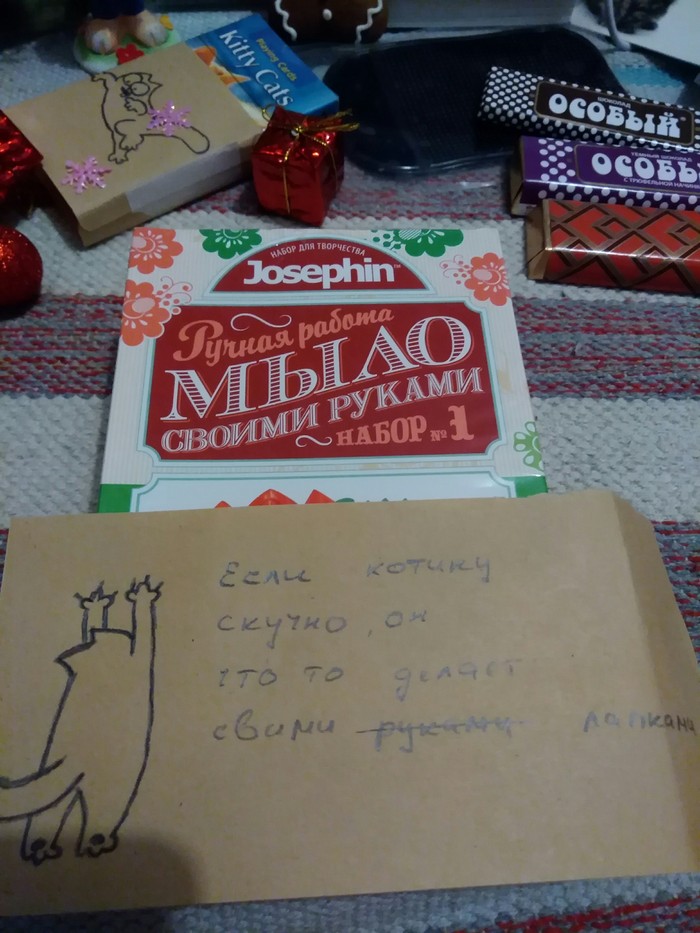 Playing Cards
Kitty Cats
ШОКОЛАД
ОСОБЫЙ
ТЕМНЫЙ ШОКОЛАД
ОСОБЫ
С ТРЮФЕЛЬНОЙ НАЧИН
НАБОР ДЛЯ ТВОРЧЕСТВА
Josephin™
Ручная работа
МЫЛО
СВОИМИ РУКАМИ
НАБОР №1
Если котику
скучно, он
что то делает
свими руками лапками